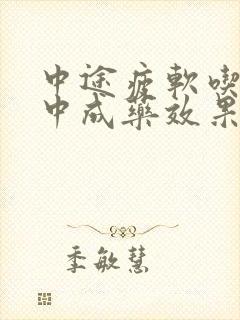 中途疲軟喫
中成藥效果
季敏慧